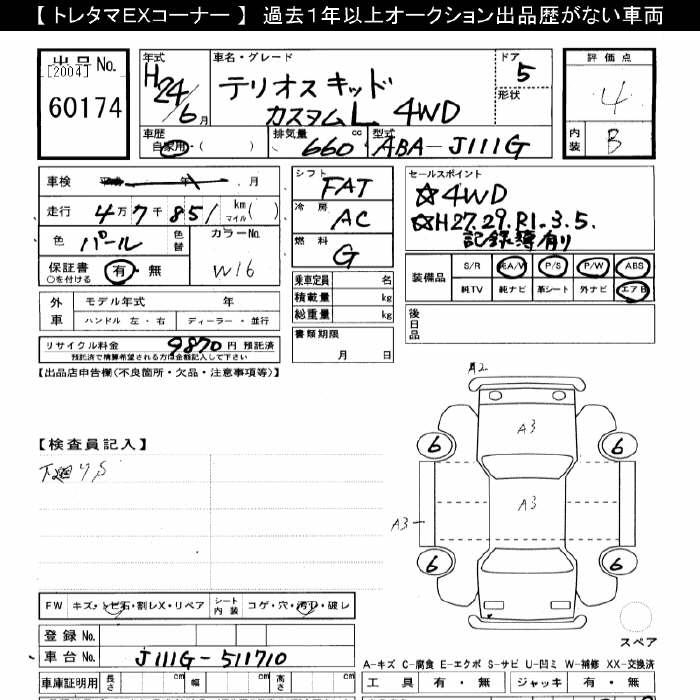 【 トレタマEXコーナー 】 過去1年以上オークション出品歴がない車両
出品 No.
[2004]
60174
年式
H24/6月
車名・グレード
テリオスキッド
カスタムL 4WD
ドア
5
形状
評価点
4
内装
B
車歴
自家用・( )
排気量
660 cc
型式
ABA-J111G
車検 年 ・ 月
走行 4万7千851 km ( )
マイル
色 パール
色替
カラーNo.
W16
保証書
○を付ける
有・無
シフト
FAT
冷房
AC
燃料
G
セールスポイント
☆4WD
☆H27.29.R1.3.5.
記録簿有り
外車
モデル年式 年
ハンドル 左・右
ディーラー・並行
乗車定員 名
積載量 kg
総重量 kg
装備品
S/R A/W P/S P/W ABS
純TV 純ナビ 革シート 外ナビ エアB
リサイクル料金 9870 円 預託済
預託済で精算希望される方は金額記入して下さい
書類期限
月 日
後日品
【出品店申告欄(不良箇所・欠品・注意事項等)】
【検査員記入】
下廻りS
A2
A3
6
6
A3
A3
6
6
スペア
FW キズ・トビ石・割レX・リペア
シート内装 コゲ・穴・汚レ・破レ
登録 No.
車台 No. J111G-511710
A-キズ C-腐食 E-エクボ S-サビ U-凹ミ W-補修 XX-交換済
車庫証明用 長さ cm 幅 cm 高さ cm
工具 有・無 ジャッキ 有・無